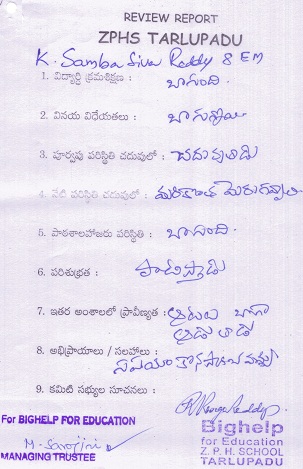 REVIEW REPORT
ZPHS TARLUPADU
K. Samba Siva Reddy 8 EM
1. విద్యార్థి క్రమశిక్షణ : బాగుంది.
2. వినయ విధేయతలు : బాగున్నాయి
3. పూర్వపు పరిస్థితి చదువులో : చదువుతాడు
4. నేటి పరిస్థితి చదువులో : మరికొంత మెరుగవ్వాలి
5. పాఠశాలహాజరు పరిస్థితి : బాగుంది.
6. పరిశుభ్రత : పాటిస్తాడు
7. ఇతర అంశాలలో ప్రావీణ్యత : ఆటలు బాగా
ఆడుతాడు
8. అభిప్రాయాలు / సలహాలు :
9. కమిటి సభ్యుల సూచనలు :
For BIGHELP FOR EDUCATION
M. Sarojini
MANAGING TRUSTEE
Bighelp
for Education
Z. P. H. SCHOOL
TARLUPADU